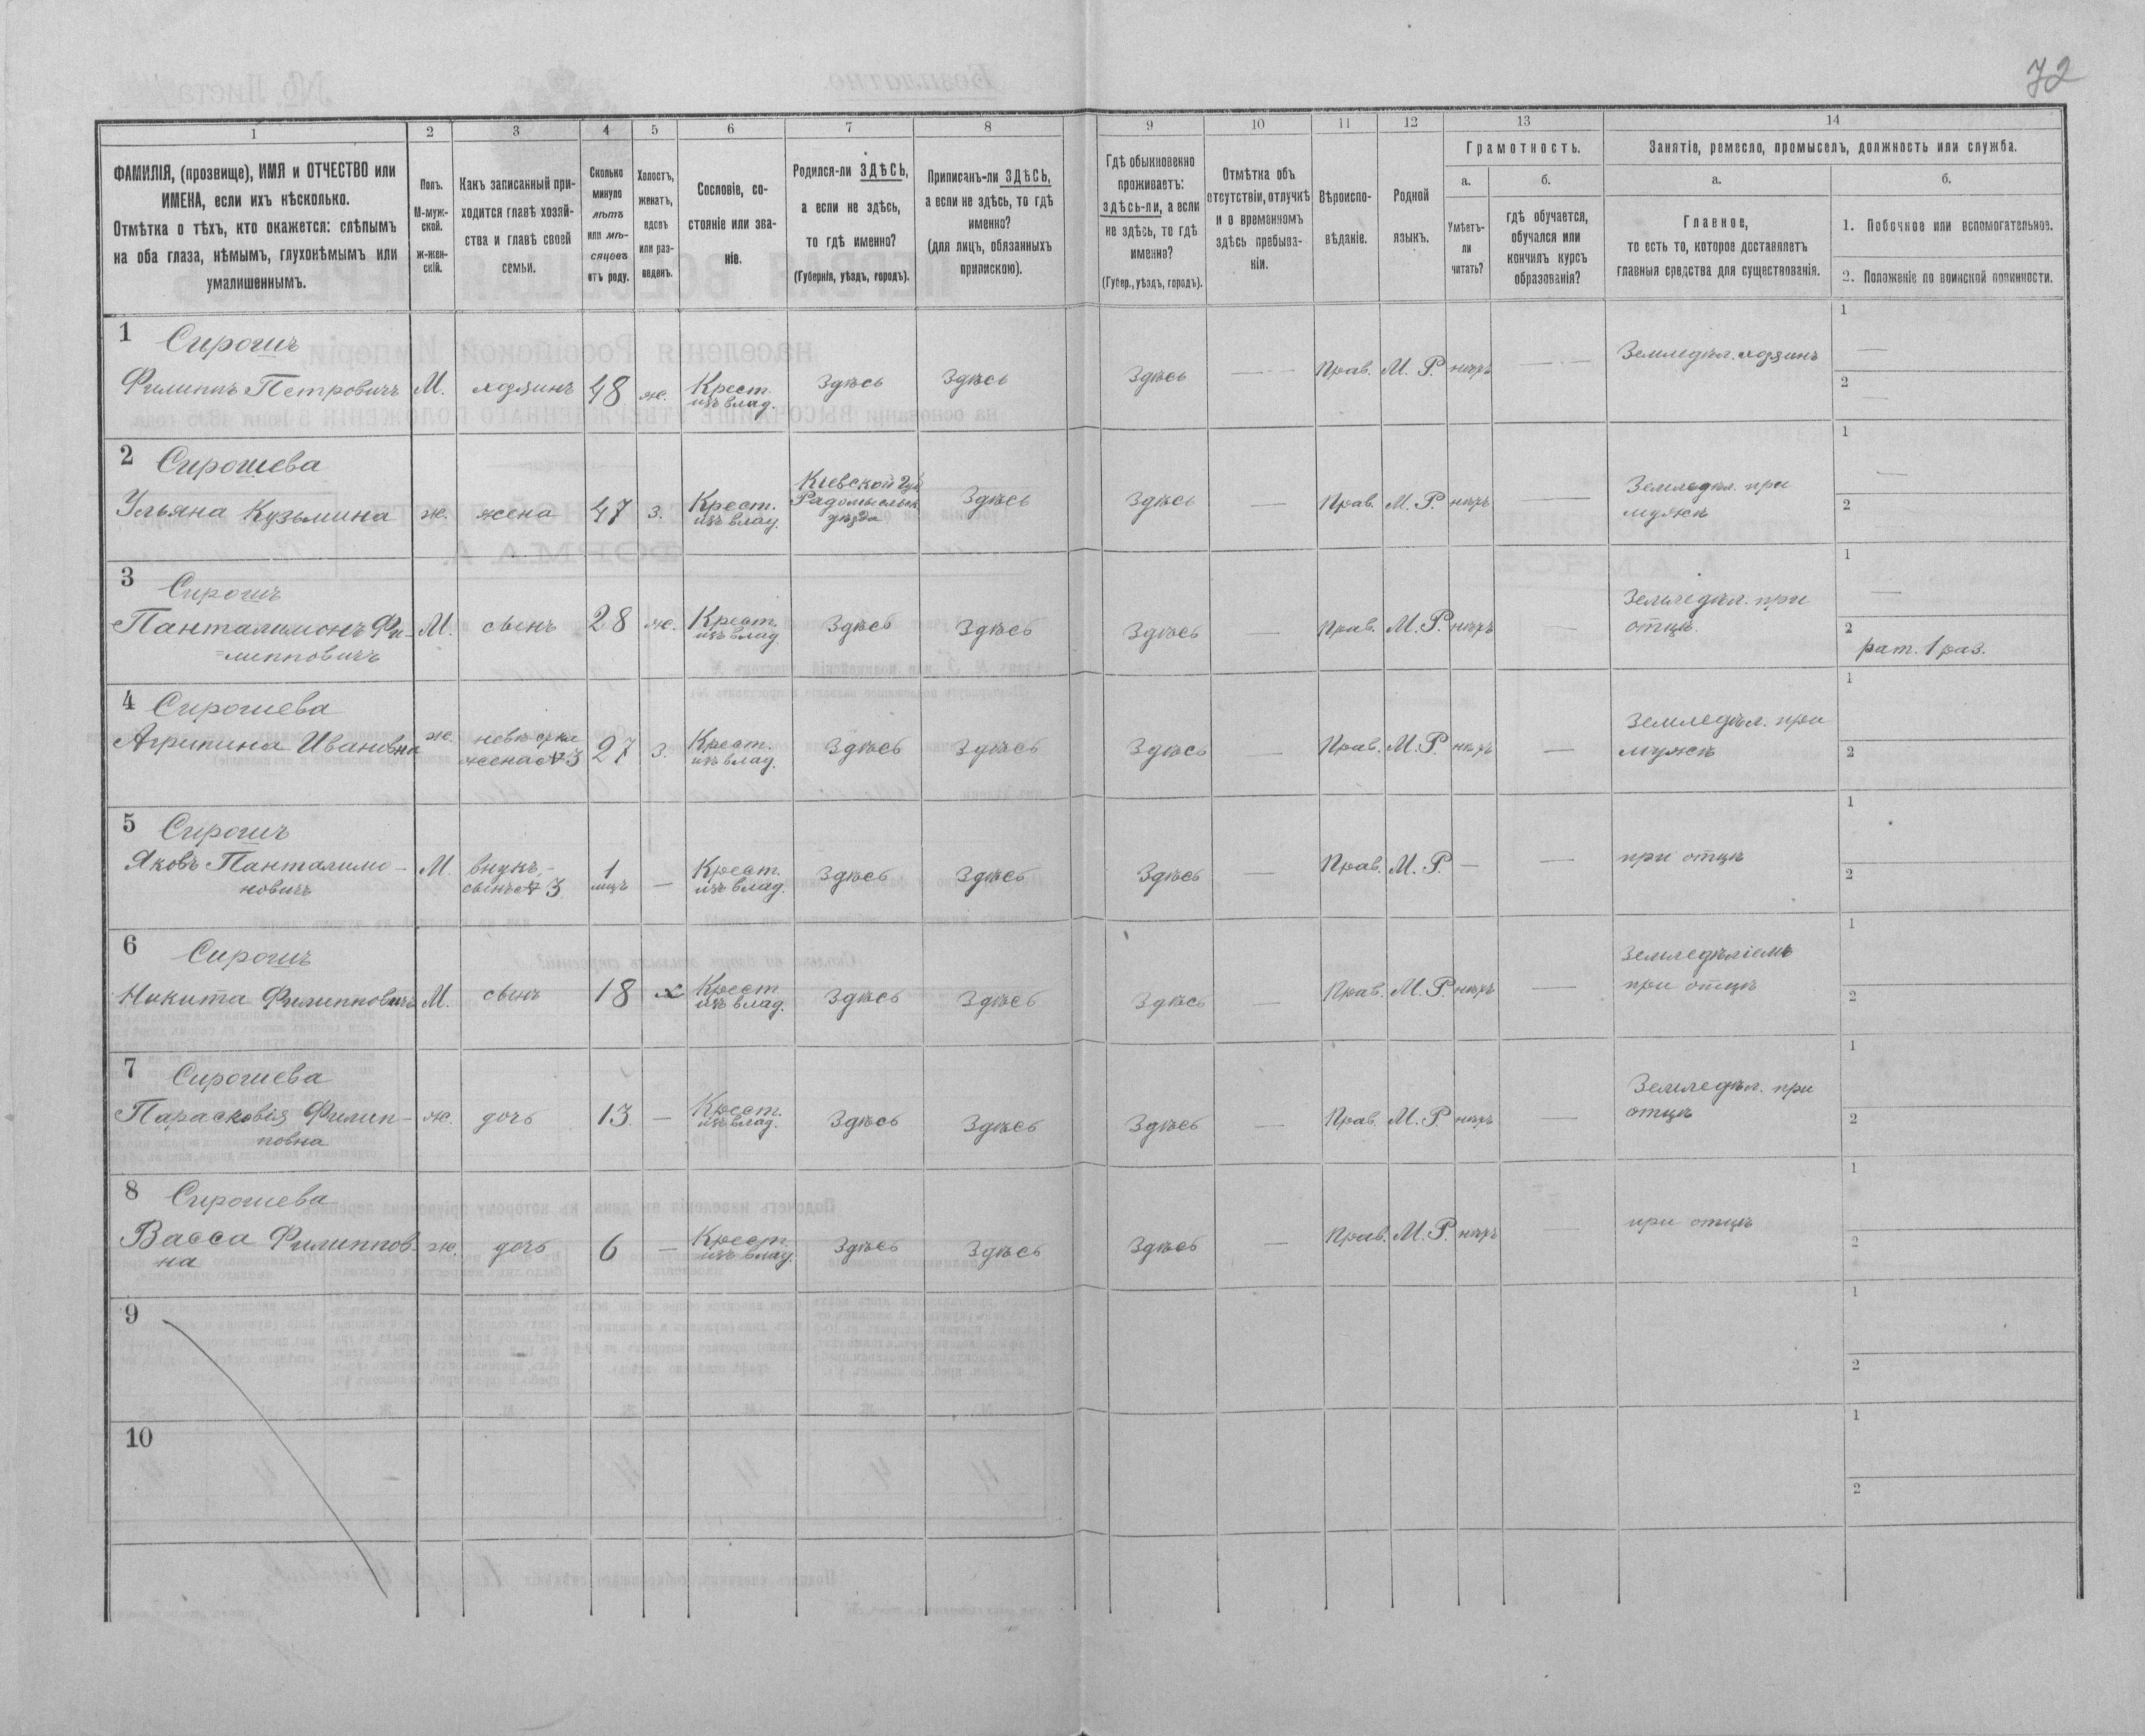 72
1 2 3 4 5 6 7 8 9 10 11 12 13 14
ФАМИЛІЯ, (прозвище), ИМЯ и ОТЧЕСТВО или
ИМЕНА, если ихъ нѣсколько.
Отмѣтка о тѣхъ, кто окажется: слѣпымъ
на оба глаза, нѣмымъ, глухонѣмымъ или
умалишеннымъ.
Полъ.
М-муж-
ской.
Ж-жен-
скій.
Какъ записанный при-
ходится главѣ хозяй-
ства и главѣ своей
семьи.
Сколько
минуло
лѣтъ
или мѣ-
сяцовъ
отъ роду.
Холостъ,
женатъ,
вдовъ
или раз-
веденъ.
Сословіе, со-
стояніе или зва-
ніе.
Родился-ли ЗДѢСЬ,
а если не здѣсь,
то гдѣ именно?
(Губернія, уѣздъ, городъ).
Приписанъ-ли ЗДѢСЬ,
а если не здѣсь, то гдѣ
именно?
(для лицъ, обязанныхъ
припискою).
Гдѣ обыкновенно
проживаетъ:
здѣсь-ли, а если
не здѣсь, то гдѣ
именно?
(Губер., уѣздъ, городъ).
Отмѣтка объ
отсутствіи, отлучкѣ
и о временномъ
здѣсь пребыва-
ніи.
Вѣроиспо-
вѣданіе.
Родной
языкъ.
Грамотность.
а.
Умѣетъ-
ли
читать?
б.
гдѣ обучается,
обучался или
кончилъ курсъ
образованія?
Занятіе, ремесло, промыселъ, должность или служба.
а.
Главное,
то есть то, которое доставляетъ
главныя средства для существованія.
б.
1. Побочное или вспомогательное.
2. Положеніе по воинской повинности.
1 Сирошъ
Филиппъ Петровичъ М. хозяинъ 48 ж. Крест.
изъ влад. Здѣсь Здѣсь Здѣсь — Прав. М. Р. нѣтъ — Земледѣл. хозяинъ
1 —
2 —
2 Сирошева
Ульяна Кузьмина ж. жена 47 з. Крест.
изъ влад. Кіевской губ.
Радомысльск.
уѣзда Здѣсь Здѣсь — Прав. М. Р. нѣтъ — Земледѣл. при
мужѣ
1 —
2
3 Сирошъ
Панталимонъ Фи-
липповичъ М. сынъ 28 ж. Крест.
изъ влад. Здѣсь Здѣсь Здѣсь — Прав. М. Р. нѣтъ — Земледѣл. при
отцѣ.
1 —
2
рат. 1 раз.
4 Сирошева
Агрипина Ивановна ж. невѣстка
жена от 3 27 з. Крест.
изъ влад. Здѣсь Здѣсь Здѣсь — Прав. М. Р. нѣтъ — Земледѣл. при
мужѣ
1
2
5 Сирошъ
Яковъ Панталимо-
новичъ М. внукъ,
сынъ от 3 1
мцъ — Крест.
изъ влад. Здѣсь Здѣсь Здѣсь — Прав. М. Р. — — при отцѣ
1
2
6 Сирошъ
Никита Филипповичъ М. сынъ 18 х Крест.
изъ влад. Здѣсь Здѣсь Здѣсь — Прав. М. Р. нѣтъ — Земледѣліемъ
при отцѣ
1
2
7 Сирошева
Парасковія Филип-
повна ж. дочь 13 — Крест.
изъ влад. Здѣсь Здѣсь Здѣсь — Прав. М. Р. нѣтъ — Земледѣл. при
отцѣ
1
2
8 Сирошева
Васса Филиппов-
на ж. дочь 6 — Крест.
изъ влад. Здѣсь Здѣсь Здѣсь — Прав. М. Р. нѣтъ — при отцѣ
1
2
9
1
2
10
1
2